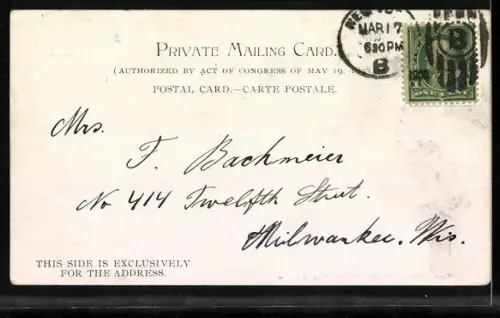 PRIVATE MAILING CARD.
(AUTHORIZED BY ACT OF CONGRESS OF MAY 19, 1898
POSTAL CARD.—CARTE POSTALE.
MAR 17
630PM
B
B
Mrs.
F. Bachmeier
No 414 Twelfth Street.
Milwaukee, Wis.
THIS SIDE IS EXCLUSIVELY
FOR THE ADDRESS.